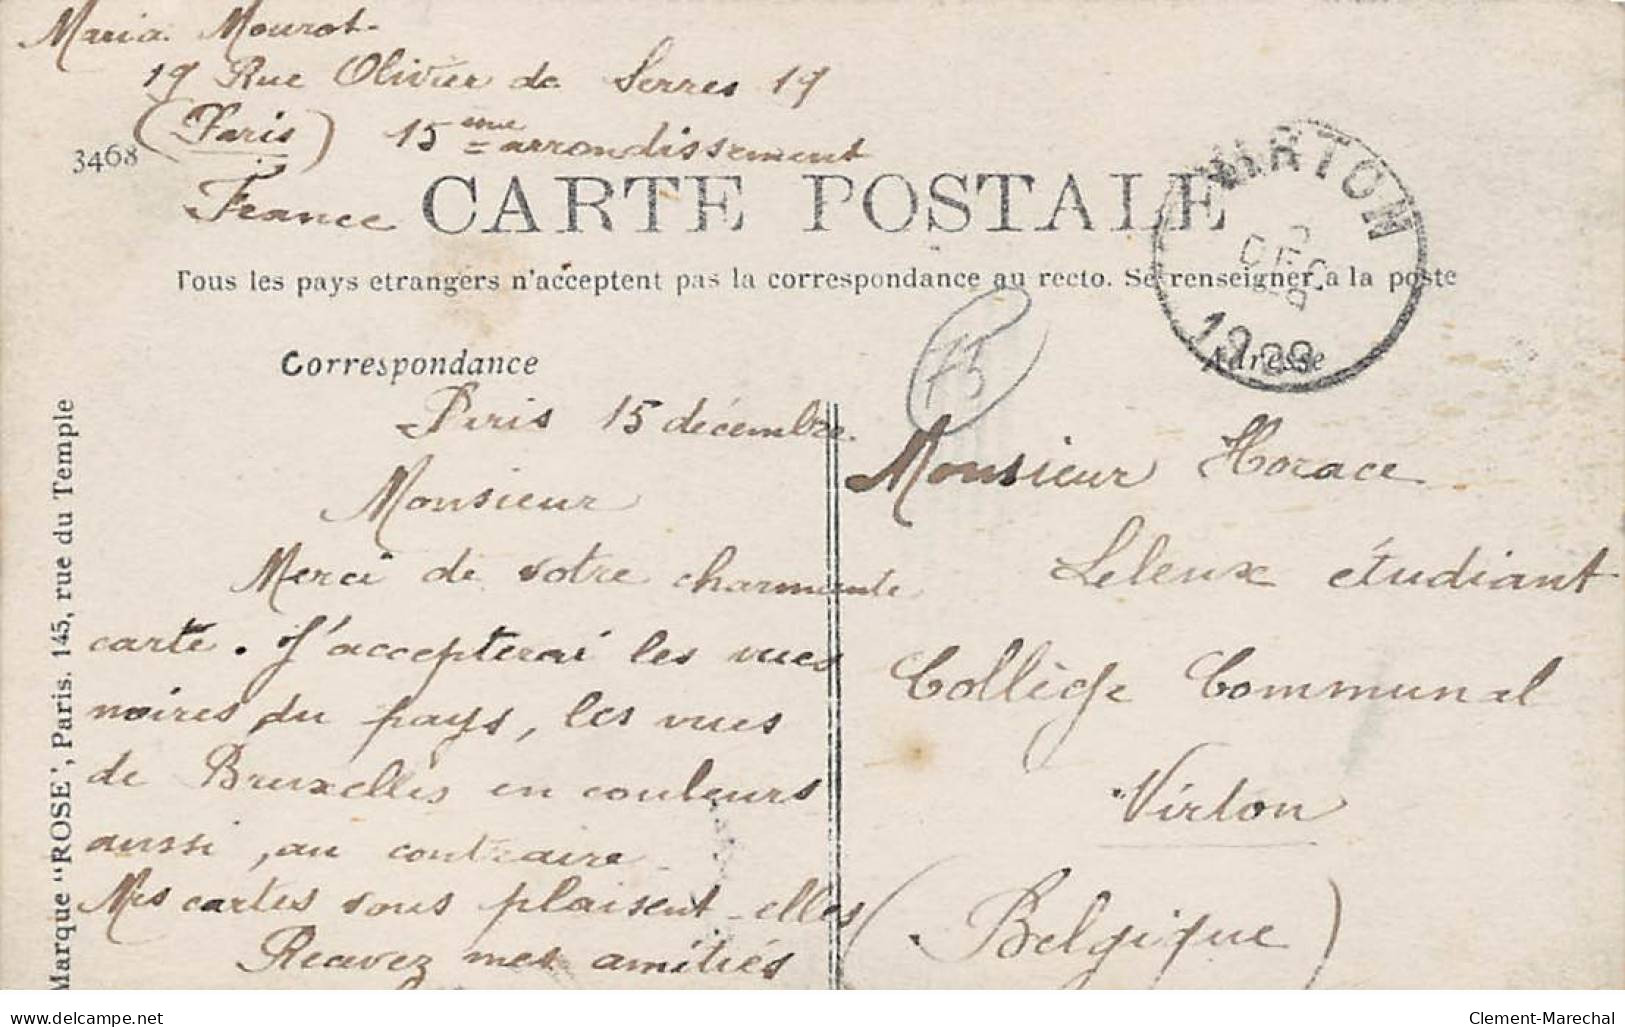 Maria Mourot
19 Rue Olivier de Serres 19
(Paris) 15ème arrondissement
3468
France
CARTE POSTALE
VIRTON
DEC
Tous les pays etrangers n'acceptent pas la correspondance au recto. Se renseigner a la poste
75
Correspondance
Adresse
Paris 15 décembre.
Monsieur
Merci de votre charmante
carte. J'accepterai les vues
noires du pays, les vues
de Bruxelles en couleurs
aussi, au contraire
Mes cartes vous plaisent-elles
Recevez mes amitiés
Monsieur Horace
Leleux étudiant
Collège Communal
Virton
(Belgique)
Marque "ROSE", Paris. 145, rue du Temple
delcampe.net
Clement-Marechal